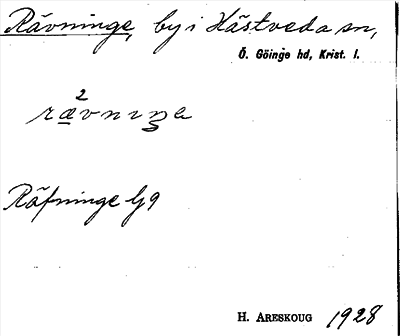 Rävninge, by i Hästveda sn,
Ö. Göinge hd, Krist. l.
2
rævnıŋe
Räfninge Gg
H. ARESKOUG 1928